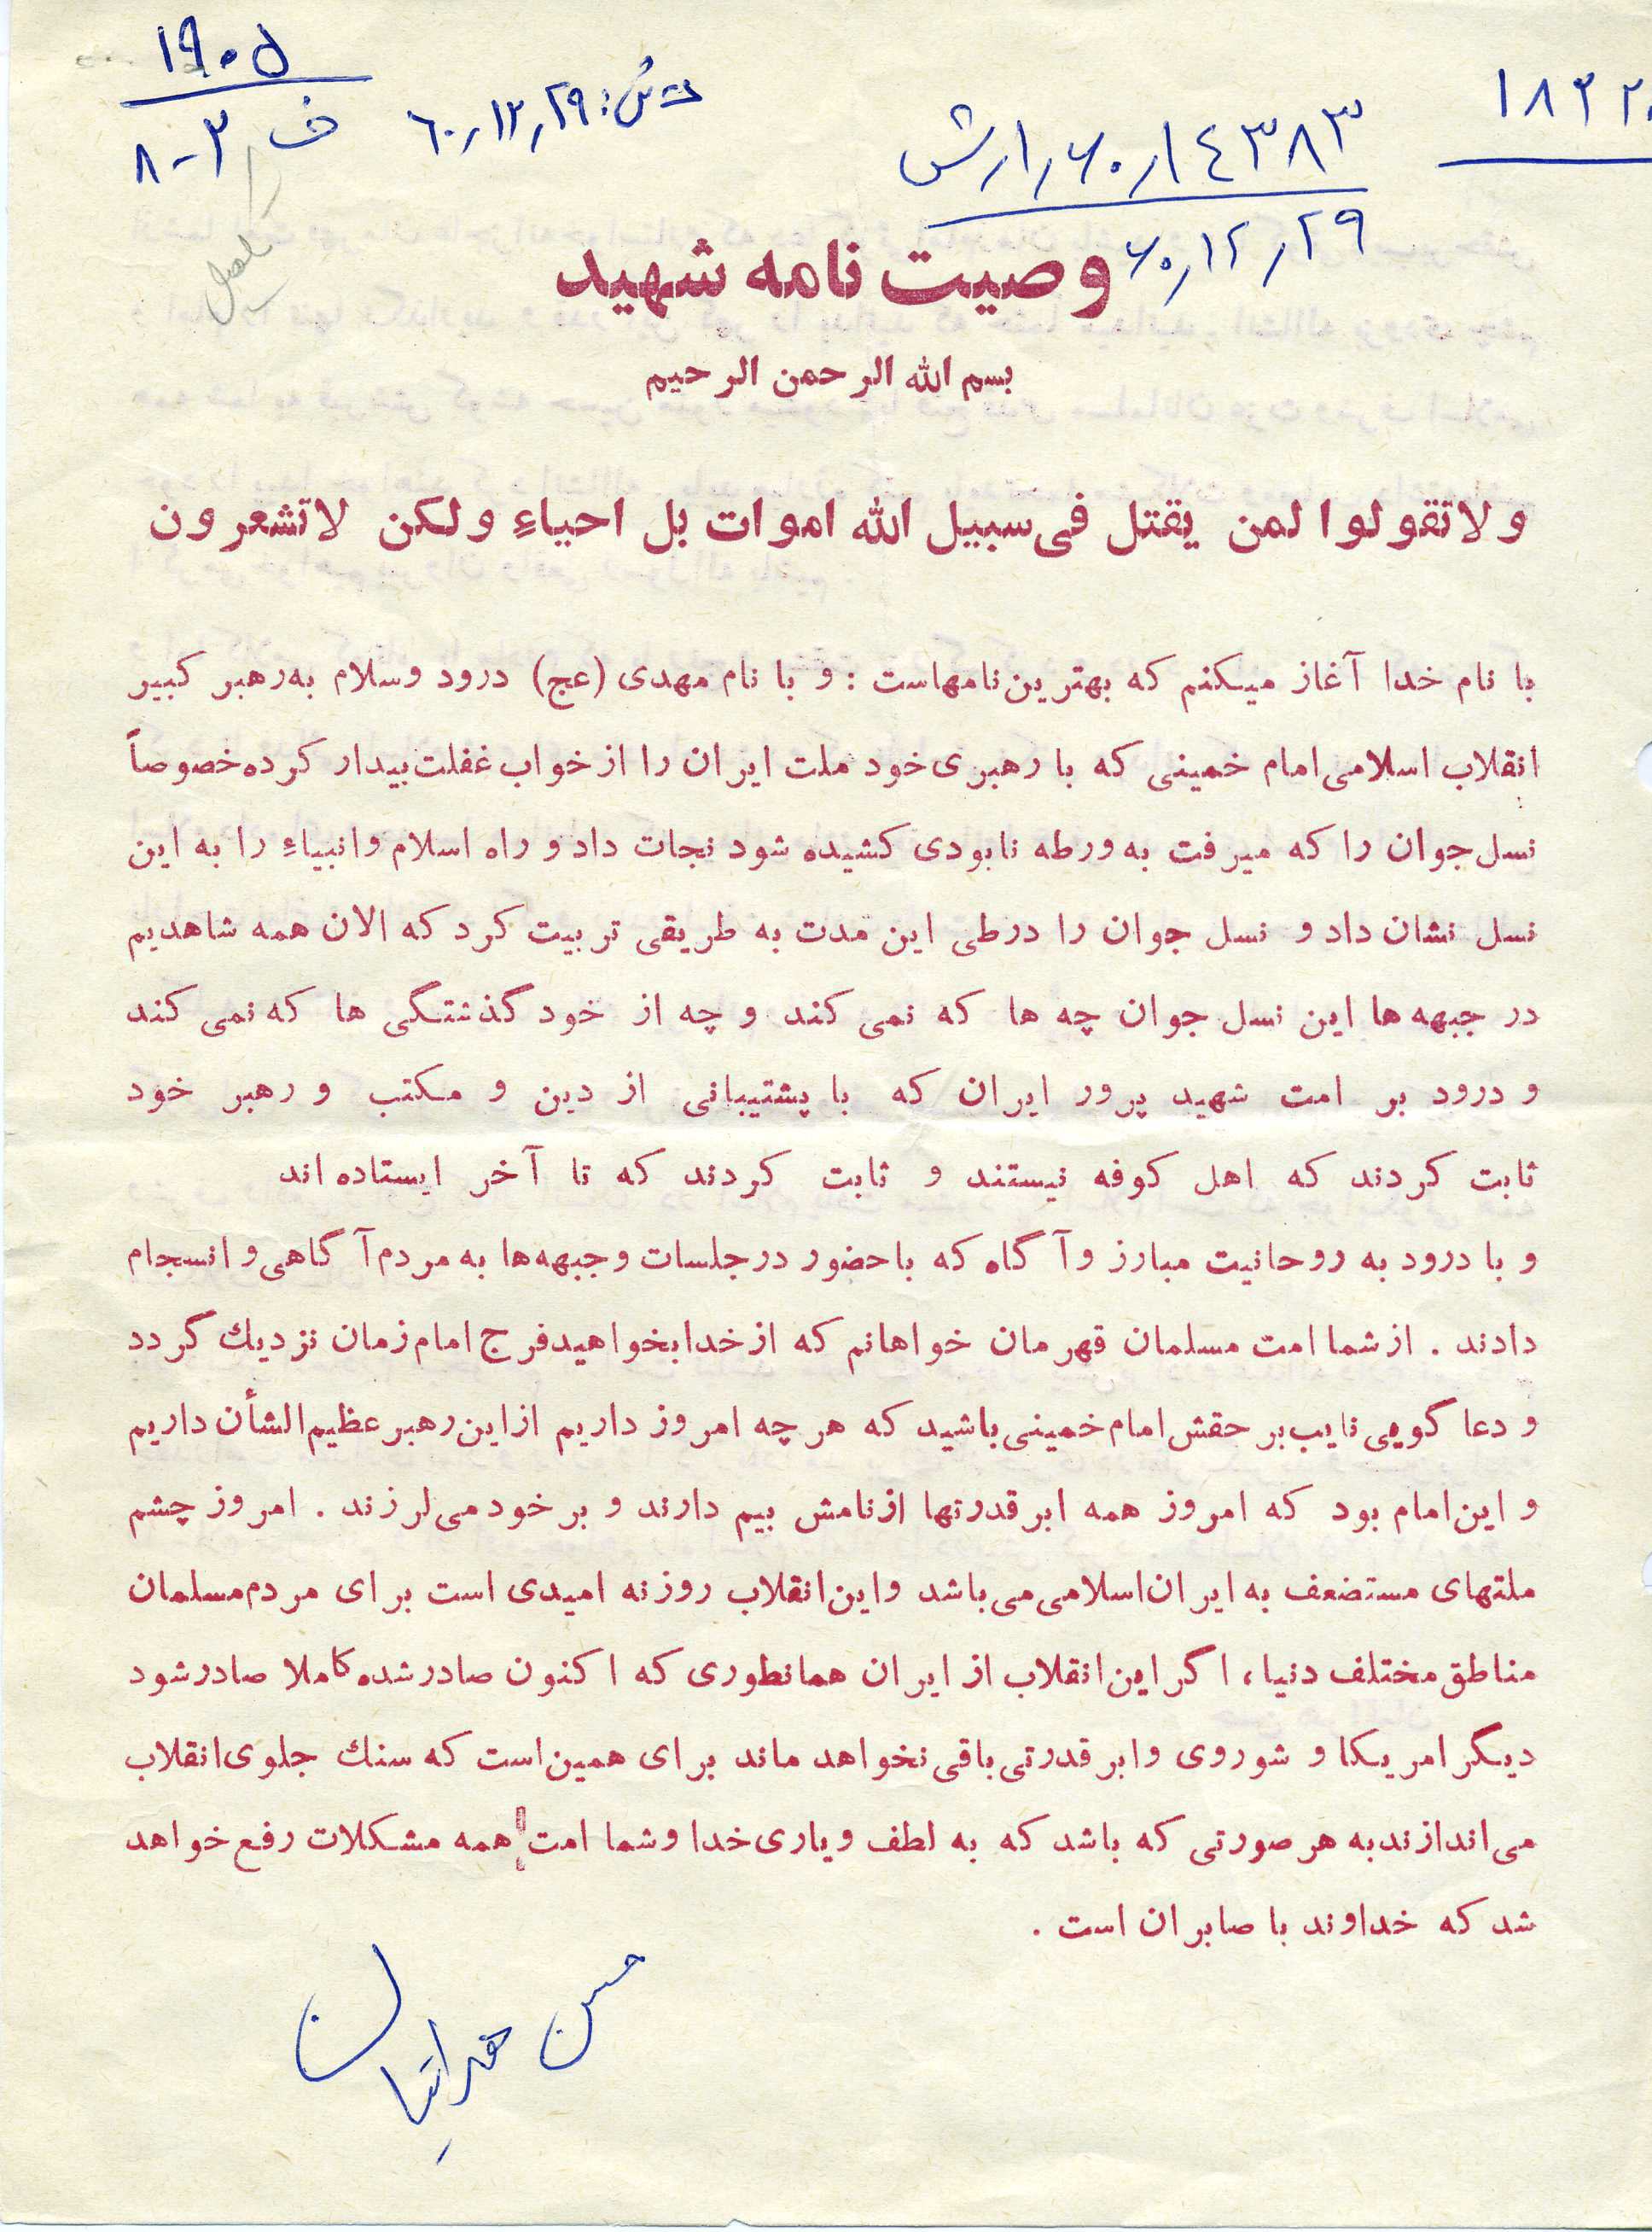 ۱۹۰۵
ف ۳-۸
ت ش: ۶۰٫۱۲٫۲۹
۱۴۳۸۳٫۶۰٫۱٫ارش
۶۰٫۱۲٫۲۹
۱۸۲۲
وصیت نامه شهید
بسم الله الرحمن الرحیم
ولاتقولوا لمن یقتل فی سبیل الله اموات بل احیاءِ ولکن لاتشعرون
با نام خدا آغاز میکنم که بهترین نامهاست : و با نام مهدی (عج) درود وسلام به رهبر کبیر
انقلاب اسلامی امام خمینی که با رهبری خود ملت ایران را از خواب غفلت بیدار کرده خصوصاً
نسل جوان را که میرفت به ورطه نابودی کشیده شود نجات داد و راه اسلام وانبیاءِ را به این
نسل نشان داد و نسل جوان را درطی این مدت به طریقی تربیت کرد که الان همه شاهدیم
در جبهه ها این نسل جوان چه ها که نمی کند و چه از خود گذشتگی ها که نمی کند
و درود بر امت شهید پرور ایران که با پشتیبانی از دین و مکتب و رهبر خود
ثابت کردند که اهل کوفه نیستند و ثابت کردند که تا آخر ایستاده اند
و با درود به روحانیت مبارز وآگاه که باحضور درجلسات وجبهه ها به مردم آگاهی و انسجام
دادند . ازشما امت مسلمان قهرمان خواهانم که ازخدا بخواهید فرج امام زمان نزدیك گردد
و دعا گویی نایب برحقش امام خمینی باشید که هرچه امروز داریم ازاین رهبر عظیم الشأن داریم
و این امام بود که امروز همه ابرقدرتها ازنامش بیم دارند و برخود می لرزند . امروز چشم
ملتهای مستضعف به ایران اسلامی می باشد واین انقلاب روزنه امیدی است برای مردم مسلمان
مناطق مختلف دنیا، اگر این انقلاب از ایران همانطوری که اکنون صادرشده کاملا صادرشود
دیگر امریکا و شوروی وابرقدرتی باقی نخواهد ماند برای همین است که سنك جلوی انقلاب
می اندازند به هر صورتی که باشد که به لطف ویاری خدا وشما امت همه مشکلات رفع خواهد
شد که خداوند با صابران است .
حسن